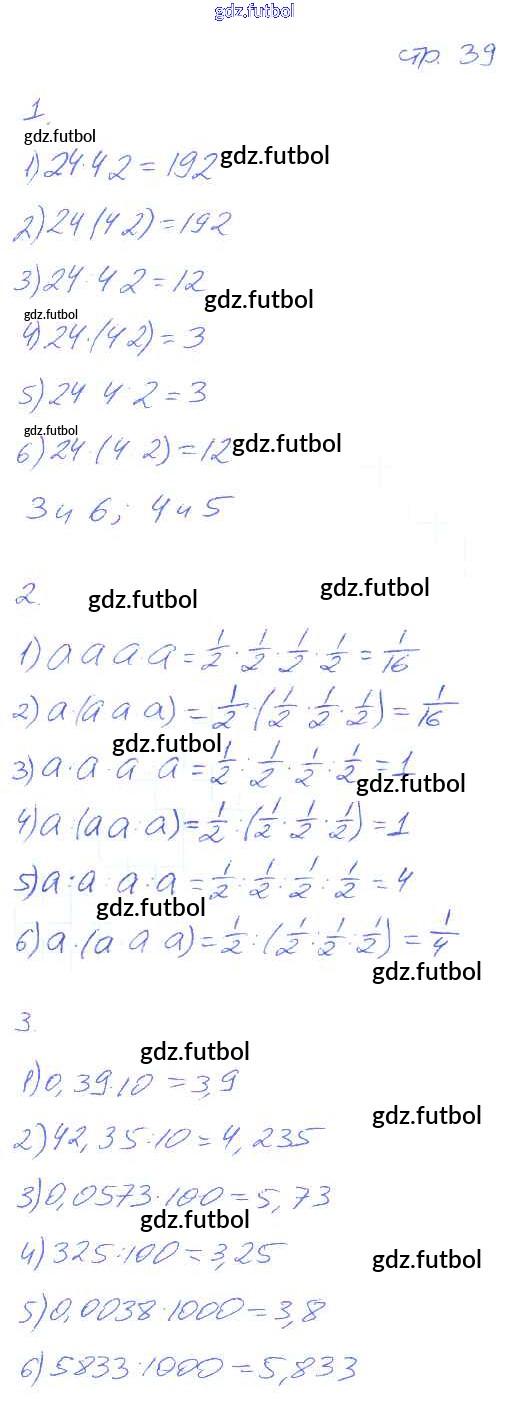 gdz.futbol
стр. 39
1.
gdz.futbol
1) 24·4 2 = 192 gdz.futbol
2) 24 (4 2) = 192
3) 24 4 2 = 12
gdz.futbol
gdz.futbol
4) 24·(4 2) = 3
5) 24 4 2 = 3
gdz.futbol
6) 24·(4 2) = 12 gdz.futbol
3 и 6; 4 и 5
2. gdz.futbol gdz.futbol
1) a a a·a = 1/2 · 1/2 · 1/2 · 1/2 = 1/16
2) a·(a a a) = 1/2 · (1/2 · 1/2 · 1/2) = 1/16
gdz.futbol
3) a·a·a a = 1/2 : 1/2 · 1/2 : 1/2 = 1
gdz.futbol
4) a (a a·a) = 1/2 : (1/2 · 1/2 : 1/2) = 1
5) a:a a:a = 1/2 : 1/2 : 1/2 : 1/2 = 4
gdz.futbol
6) a·(a a a) = 1/2 : (1/2 : 1/2 : 1/2) = 1/4
gdz.futbol
3.
gdz.futbol
1) 0,39·10 = 3,9
gdz.futbol
2) 42,35:10 = 4,235
3) 0,0573·100 = 5,73
gdz.futbol
4) 325:100 = 3,25
gdz.futbol
5) 0,0038·1000 = 3,8
6) 5833:1000 = 5,833